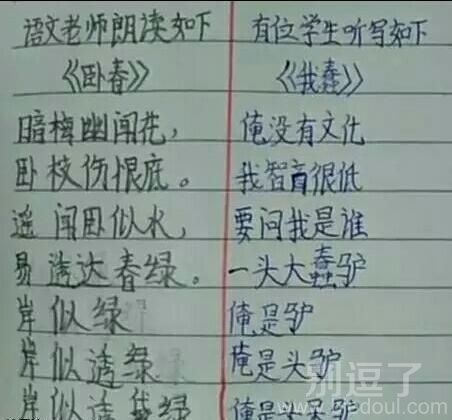 语文老师朗读如下
《卧春》
暗梅幽闻花，
卧枝伤恨底。
遥闻卧似水，
易透达春绿。
岸似绿
岸似透绿
岸似透黛绿
有位学生听写如下
《我蠢》
俺没有文化
我智商很低
要问我是谁
一头大蠢驴
俺是驴
俺是头驴
俺是头呆驴
别逗了